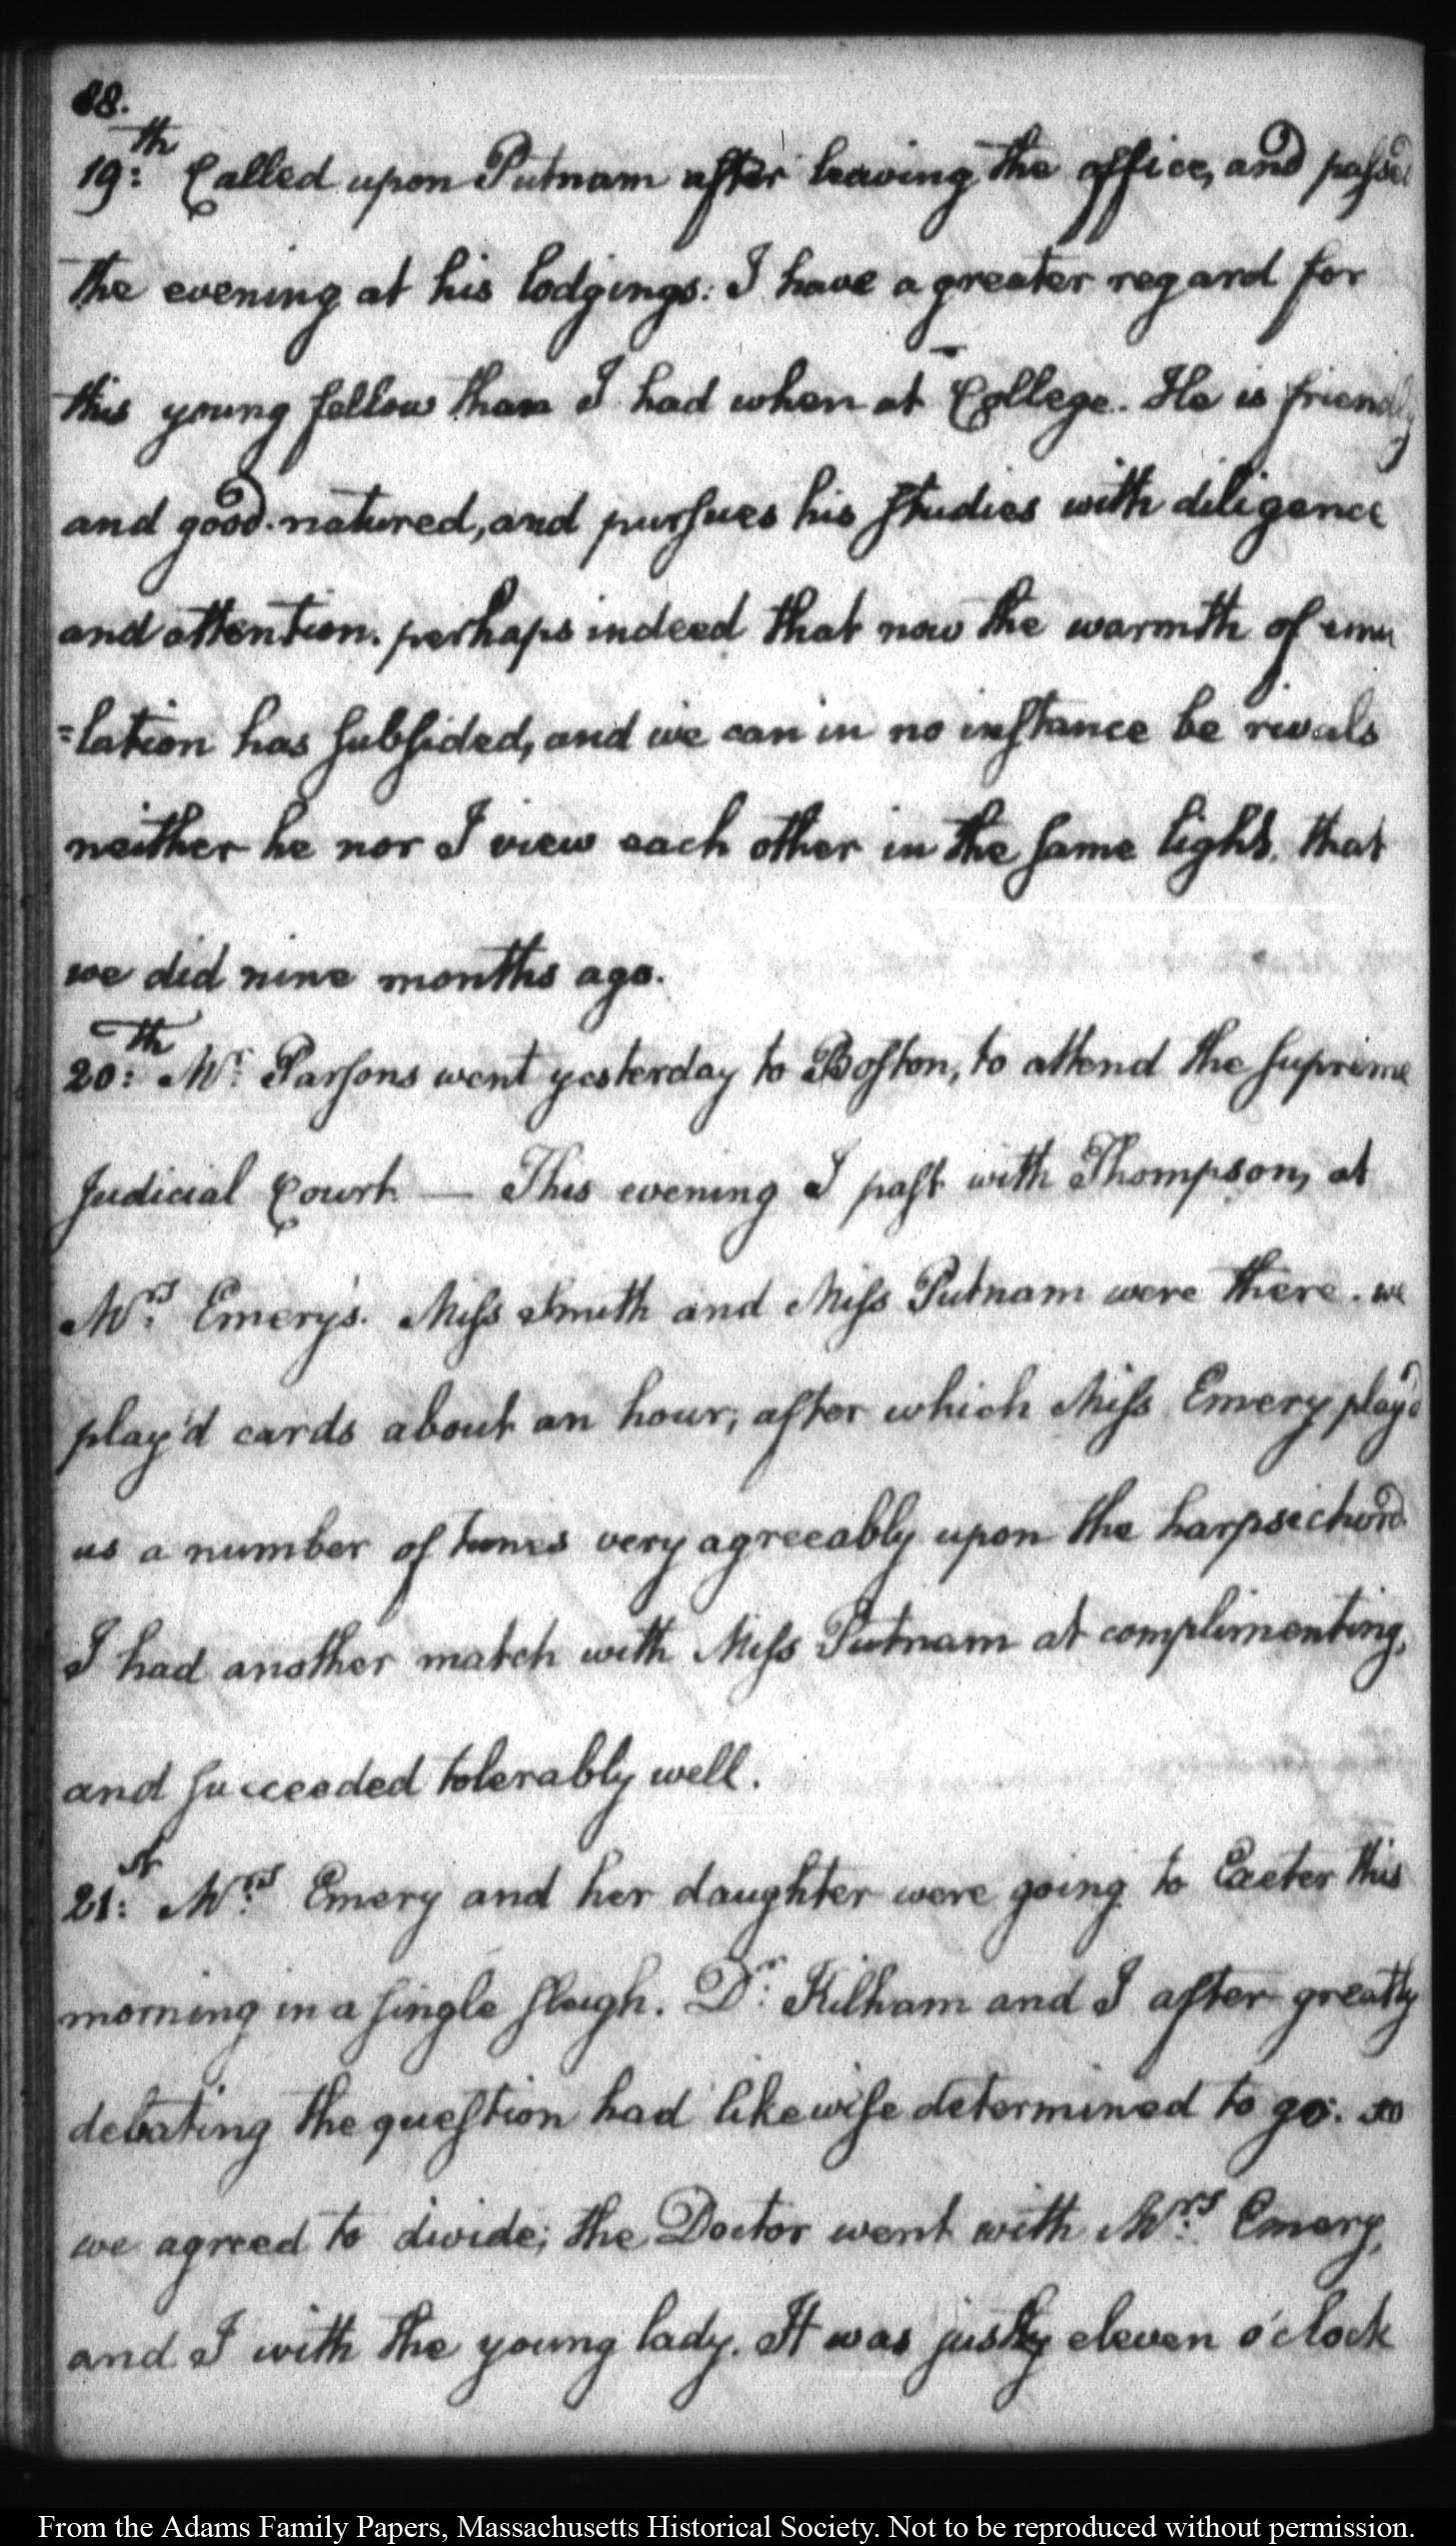 88.
19:th Called upon Putnam after leaving the office, and passed
the evening at his lodgings: I have a greater regard for
this young fellow than I had when at College. He is friendly
and good-natured, and pursues his studies with diligence
and attention. perhaps indeed that now the warmth of emu
=lation has subsided, and we can in no instance be rivals
neither he nor I view each other in the same light, that
we did nine months ago.
20:th Mr. Parsons went yesterday to Boston, to attend the supreme
Judicial Court — This evening I past with Thompson, at
Mrs. Emery's. Miss Smith and Miss Putnam were there. we
play'd cards about an hour; after which Miss Emery play'd
us a number of tunes very agreeably upon the harpsichord.
I had another match with Miss Putnam at complimenting,
and succeeded tolerably well.
21:st Mrs. Emery and her daughter were going to Exeter this
morning in a single sleigh. Dr. Kilham and I after greatly
debating the question had likewise determined to go: so
we agreed to divide; the Doctor went with Mrs. Emery,
and I with the young lady. It was just eleven o'clock
From the Adams Family Papers, Massachusetts Historical Society. Not to be reproduced without permission.